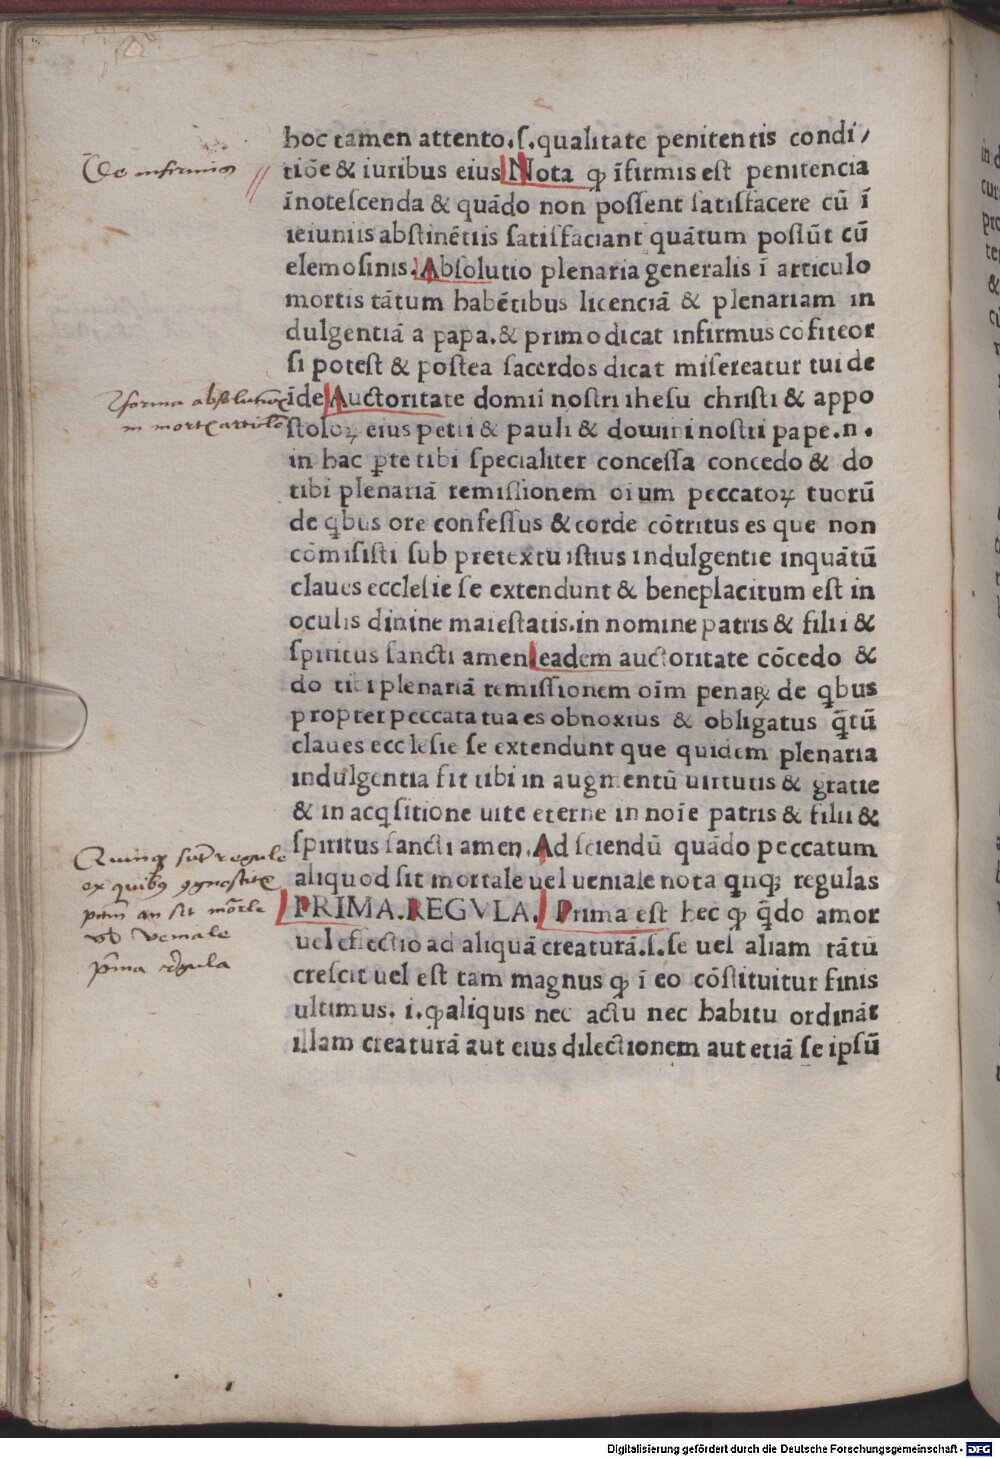 hoc tamen attento.ſ.qualitate penitentis condi/
De infirmis
tiōe & iuribus eius Nota ꝙ īfirmis eſt penitencia
īnoteſcenda & quādo non poſſent ſatiſfacere cū ī
ieiuniis abſtinētiis ſatiſfaciant quātum poſſūt cū
elemoſinis. Abſolutio plenaria generalis ī articulo
mortis tātum habētibus licenciā & plenariam in
dulgentiā a papa.& primo dicat infirmus cōfiteor
ſi poteſt & poſtea ſacerdos dicat miſereatur tui de
forma absolutionis
in mortis articulo
īde Auctoritate domii noſtri iheſu chriſti & appo
ſtoloꝝ eius petri & pauli & domini noſtri pape.n.
in hac ꝑte tibi ſpecialiter conceſſa concedo & do
tibi plenariā remiſſionem oium peccatoꝝ tuorū
de qbus ore confeſſus & corde cōtritus es que non
cōmiſiſti ſub pretextu iſtius indulgentie inquātū
claues eccleſie ſe extendunt & beneplacitum eſt in
oculis diuine maieſtatis.in nomine patris & filii &
ſpiritus ſancti amen eadem auctoritate cōcedo &
do tibi plenariā remiſſionem oīm penaꝝ de qbus
propter peccata tua es obnoxius & obligatus q̄tū
claues eccleſie ſe extendunt que quidem plenaria
indulgentia ſit tibi in augmentū uirtutis & gratie
& in acqſitione uite eterne in noīe patris & filii &
Quinq sūt regule
ex quibꝯ ꝯgnoscitur
pctm̄ an sit mortale
vel veniale
p̄ma regula
ſpiritus ſancti amen. Ad ſciendū quādo peccatum
aliquod ſit mortale uel ueniale nota qnqꝫ regulas
PRIMA.REGVLA. Prima eſt hec ꝙ q̄do amor
uel effectio ad aliquā creaturā.ſ.ſe uel aliam tātū
creſcit uel eſt tam magnus ꝙ ī eo cōſtituitur finis
ultimus. i.ꝙ aliquis nec actu nec habitu ordināt
illam creaturā aut eius dilectionem aut etiā ſe ipſū
Digitalisierung gefördert durch die Deutsche Forschungsgemeinschaft - DFG